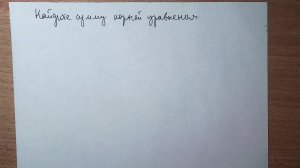 Найдите сумму корней уравнения.